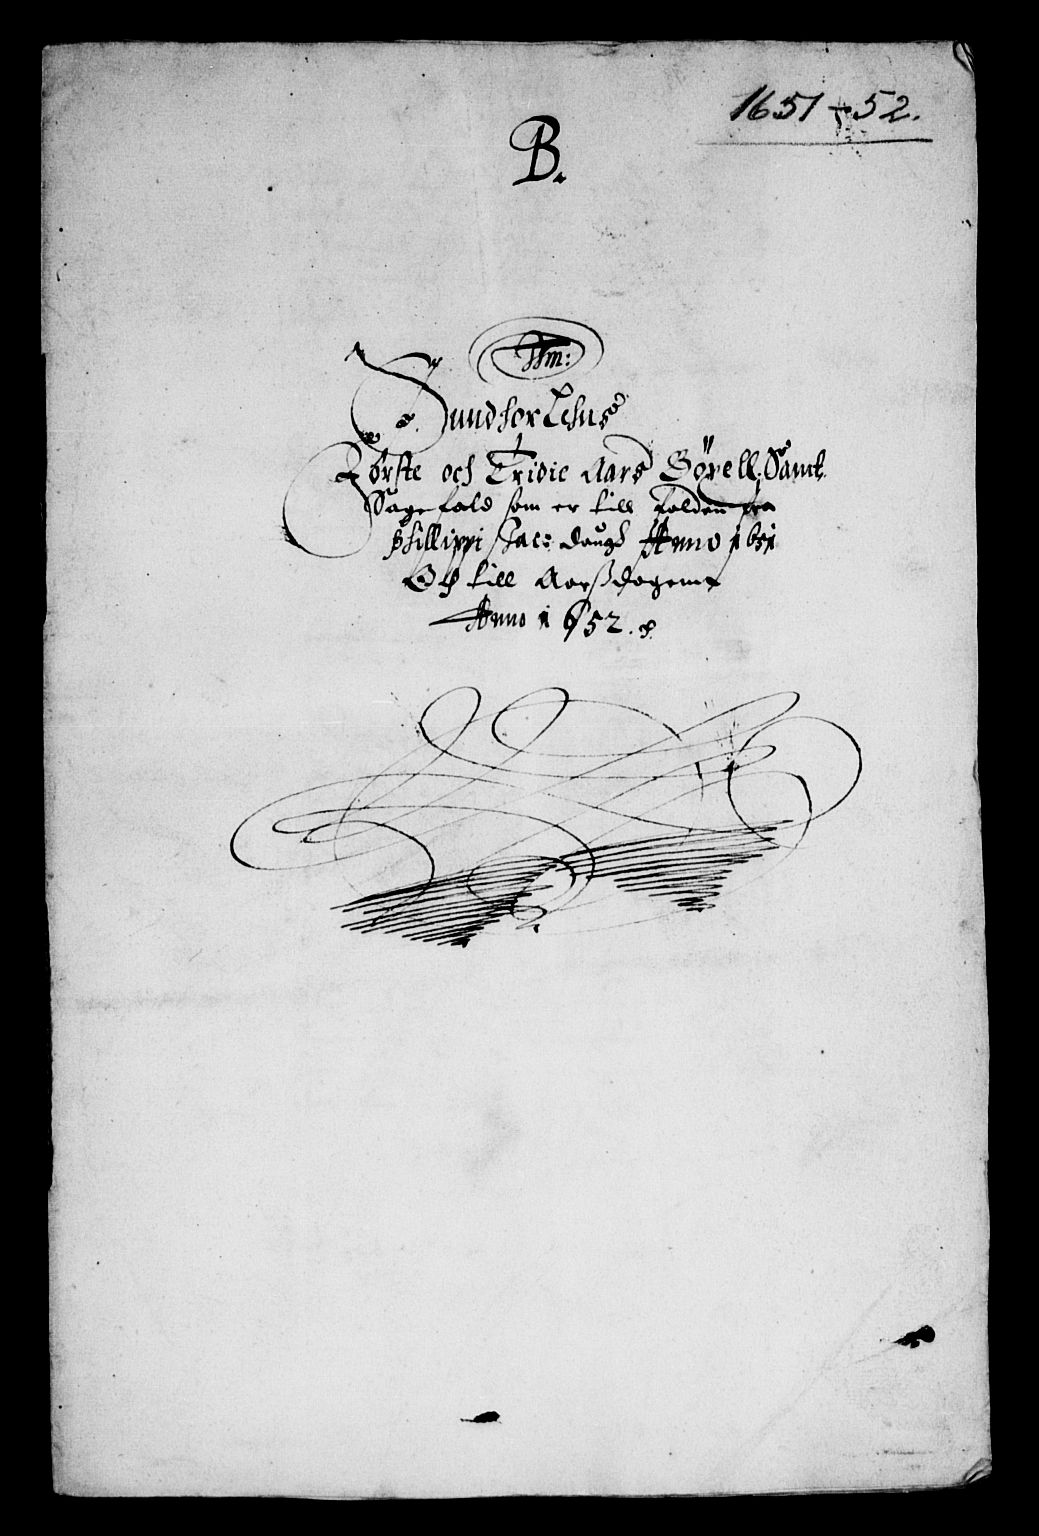 1651-52.
B.
Sundhor Lehns
Første och Tridie Aars Bøxell. Sampt
Sagefald som er till falden fra
Phillippi Jac: daugs Anno 1651
Och till Aarsdagenn
Anno 1652.